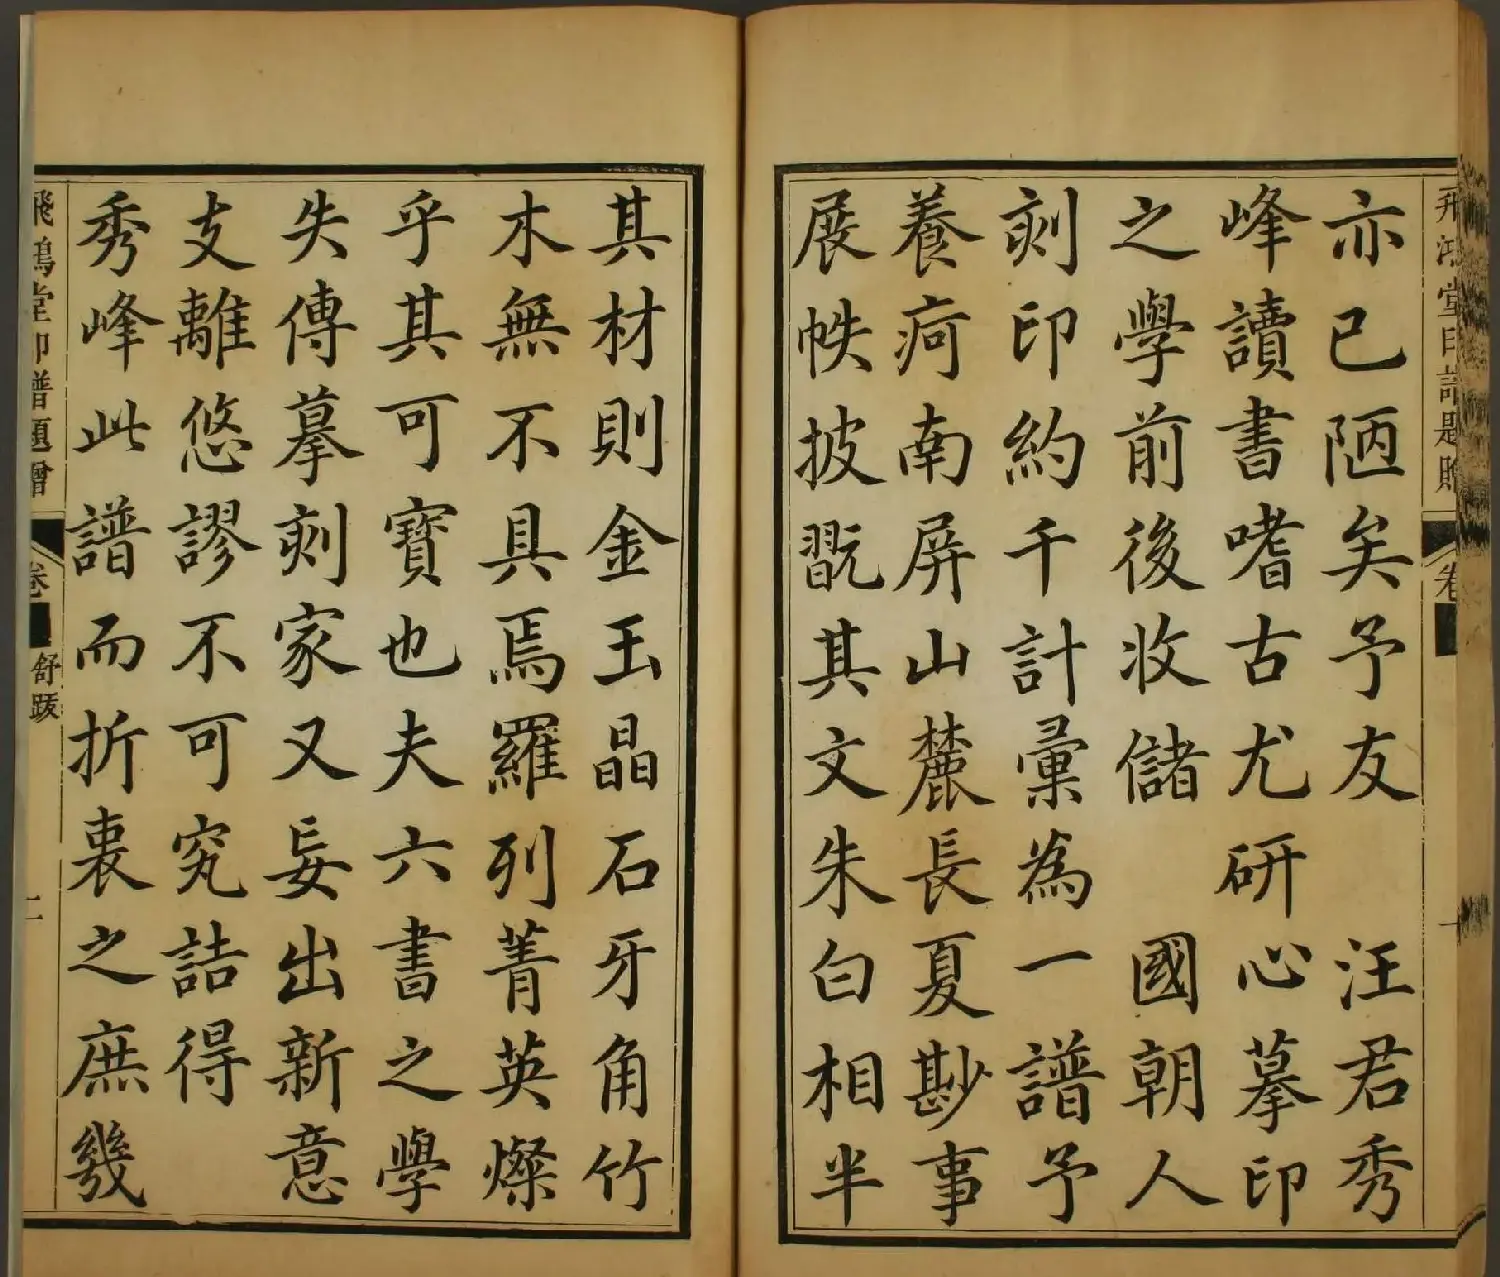 飛鴻堂印譜題贈
卷
一
亦已陋矣予友　汪君秀
峰讀書嗜古尤研心摹印
之學前後收儲　國朝人
刻印約千計彙為一譜予
養疴南屏山麓長夏尠事
展帙披翫其文朱白相半
其材則金玉晶石牙角竹
木無不具焉羅列菁英燦
乎其可寶也夫六書之學
失傳摹刻家又妄出新意
支離悠謬不可究詰得
秀峰此譜而折衷之庶幾
飛鴻堂印譜題贈
卷
舒跋
二